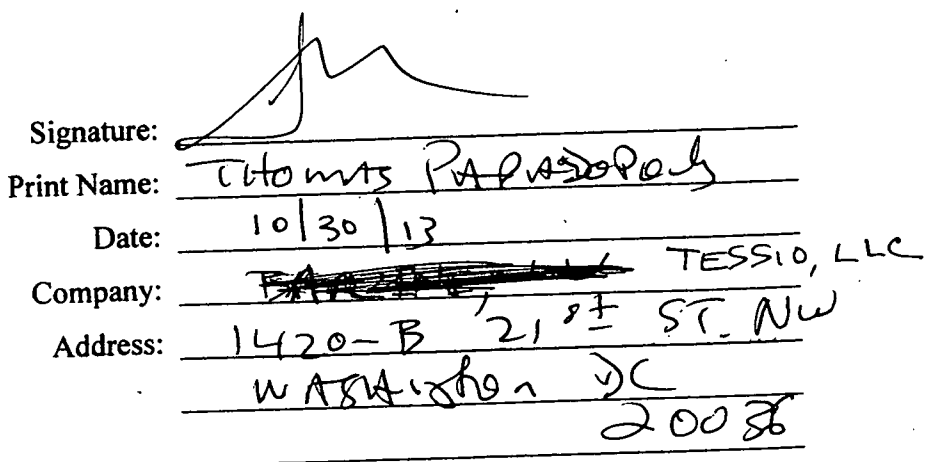 Signature:
Print Name: THOMAS PAPADOPOLS
Date: 10/30/13
Company: TESSIO, LLC
Address: 1420-B 21st ST. NW
WASHington DC
20036